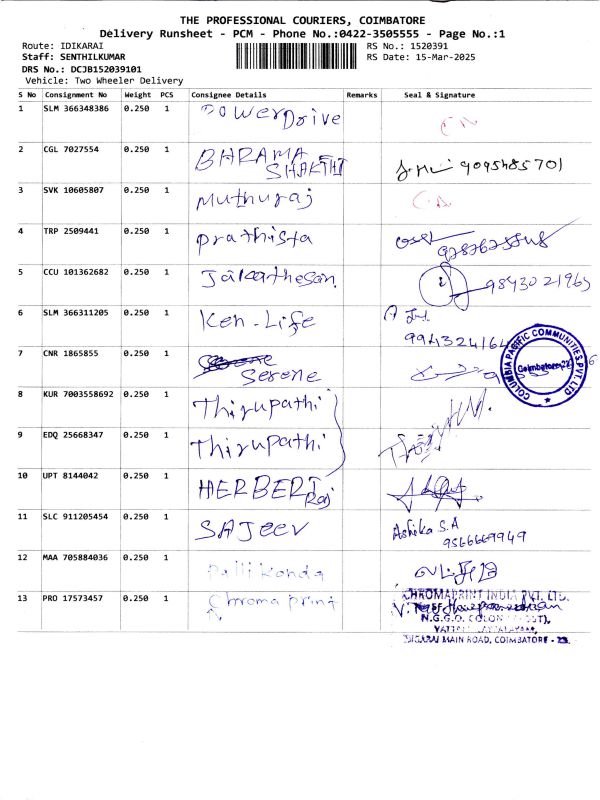 THE PROFESSIONAL COURIERS, COIMBATORE
Delivery Runsheet - PCM - Phone No.:0422-3505555 - Page No.:1
Route: IDIKARAI
RS No.: 1520391
Staff: SENTHILKUMAR
RS Date: 15-Mar-2025
DRS No.: DCJB152039101
Vehicle: Two Wheeler Delivery
S No Consignment No Weight PCS Consignee Details Remarks Seal & Signature
1 SLM 366348386 0.250 1 Power Drive
2 CGL 7027554 0.250 1 BHRAMA SHAKTHI 9095485701
3 SVK 10605807 0.250 1 Muthuraj
4 TRP 2509441 0.250 1 Prathista
5 CCU 101362682 0.250 1 Jakatheesan 9843021965
6 SLM 366311205 0.250 1 Ken-Life
7 CNR 1865855 0.250 1 Serene
COLUMBIA PACIFIC COMMUNITIES PVT. LTD
8 KUR 7003558692 0.250 1 Thirupathi
9 EDQ 25668347 0.250 1 Thirupathi
10 UPT 8144042 0.250 1 HERBERT Raj
11 SLC 911205454 0.250 1 SAJEEV Ashika S.A
9566669949
12 MAA 705884036 0.250 1 Palli Konda
13 PRO 17573457 0.250 1 Chroma print CHROMAPRINT INDIA PVT. LTD.
N.G.G.O. COLONY
MAIN ROAD, COIMBATORE